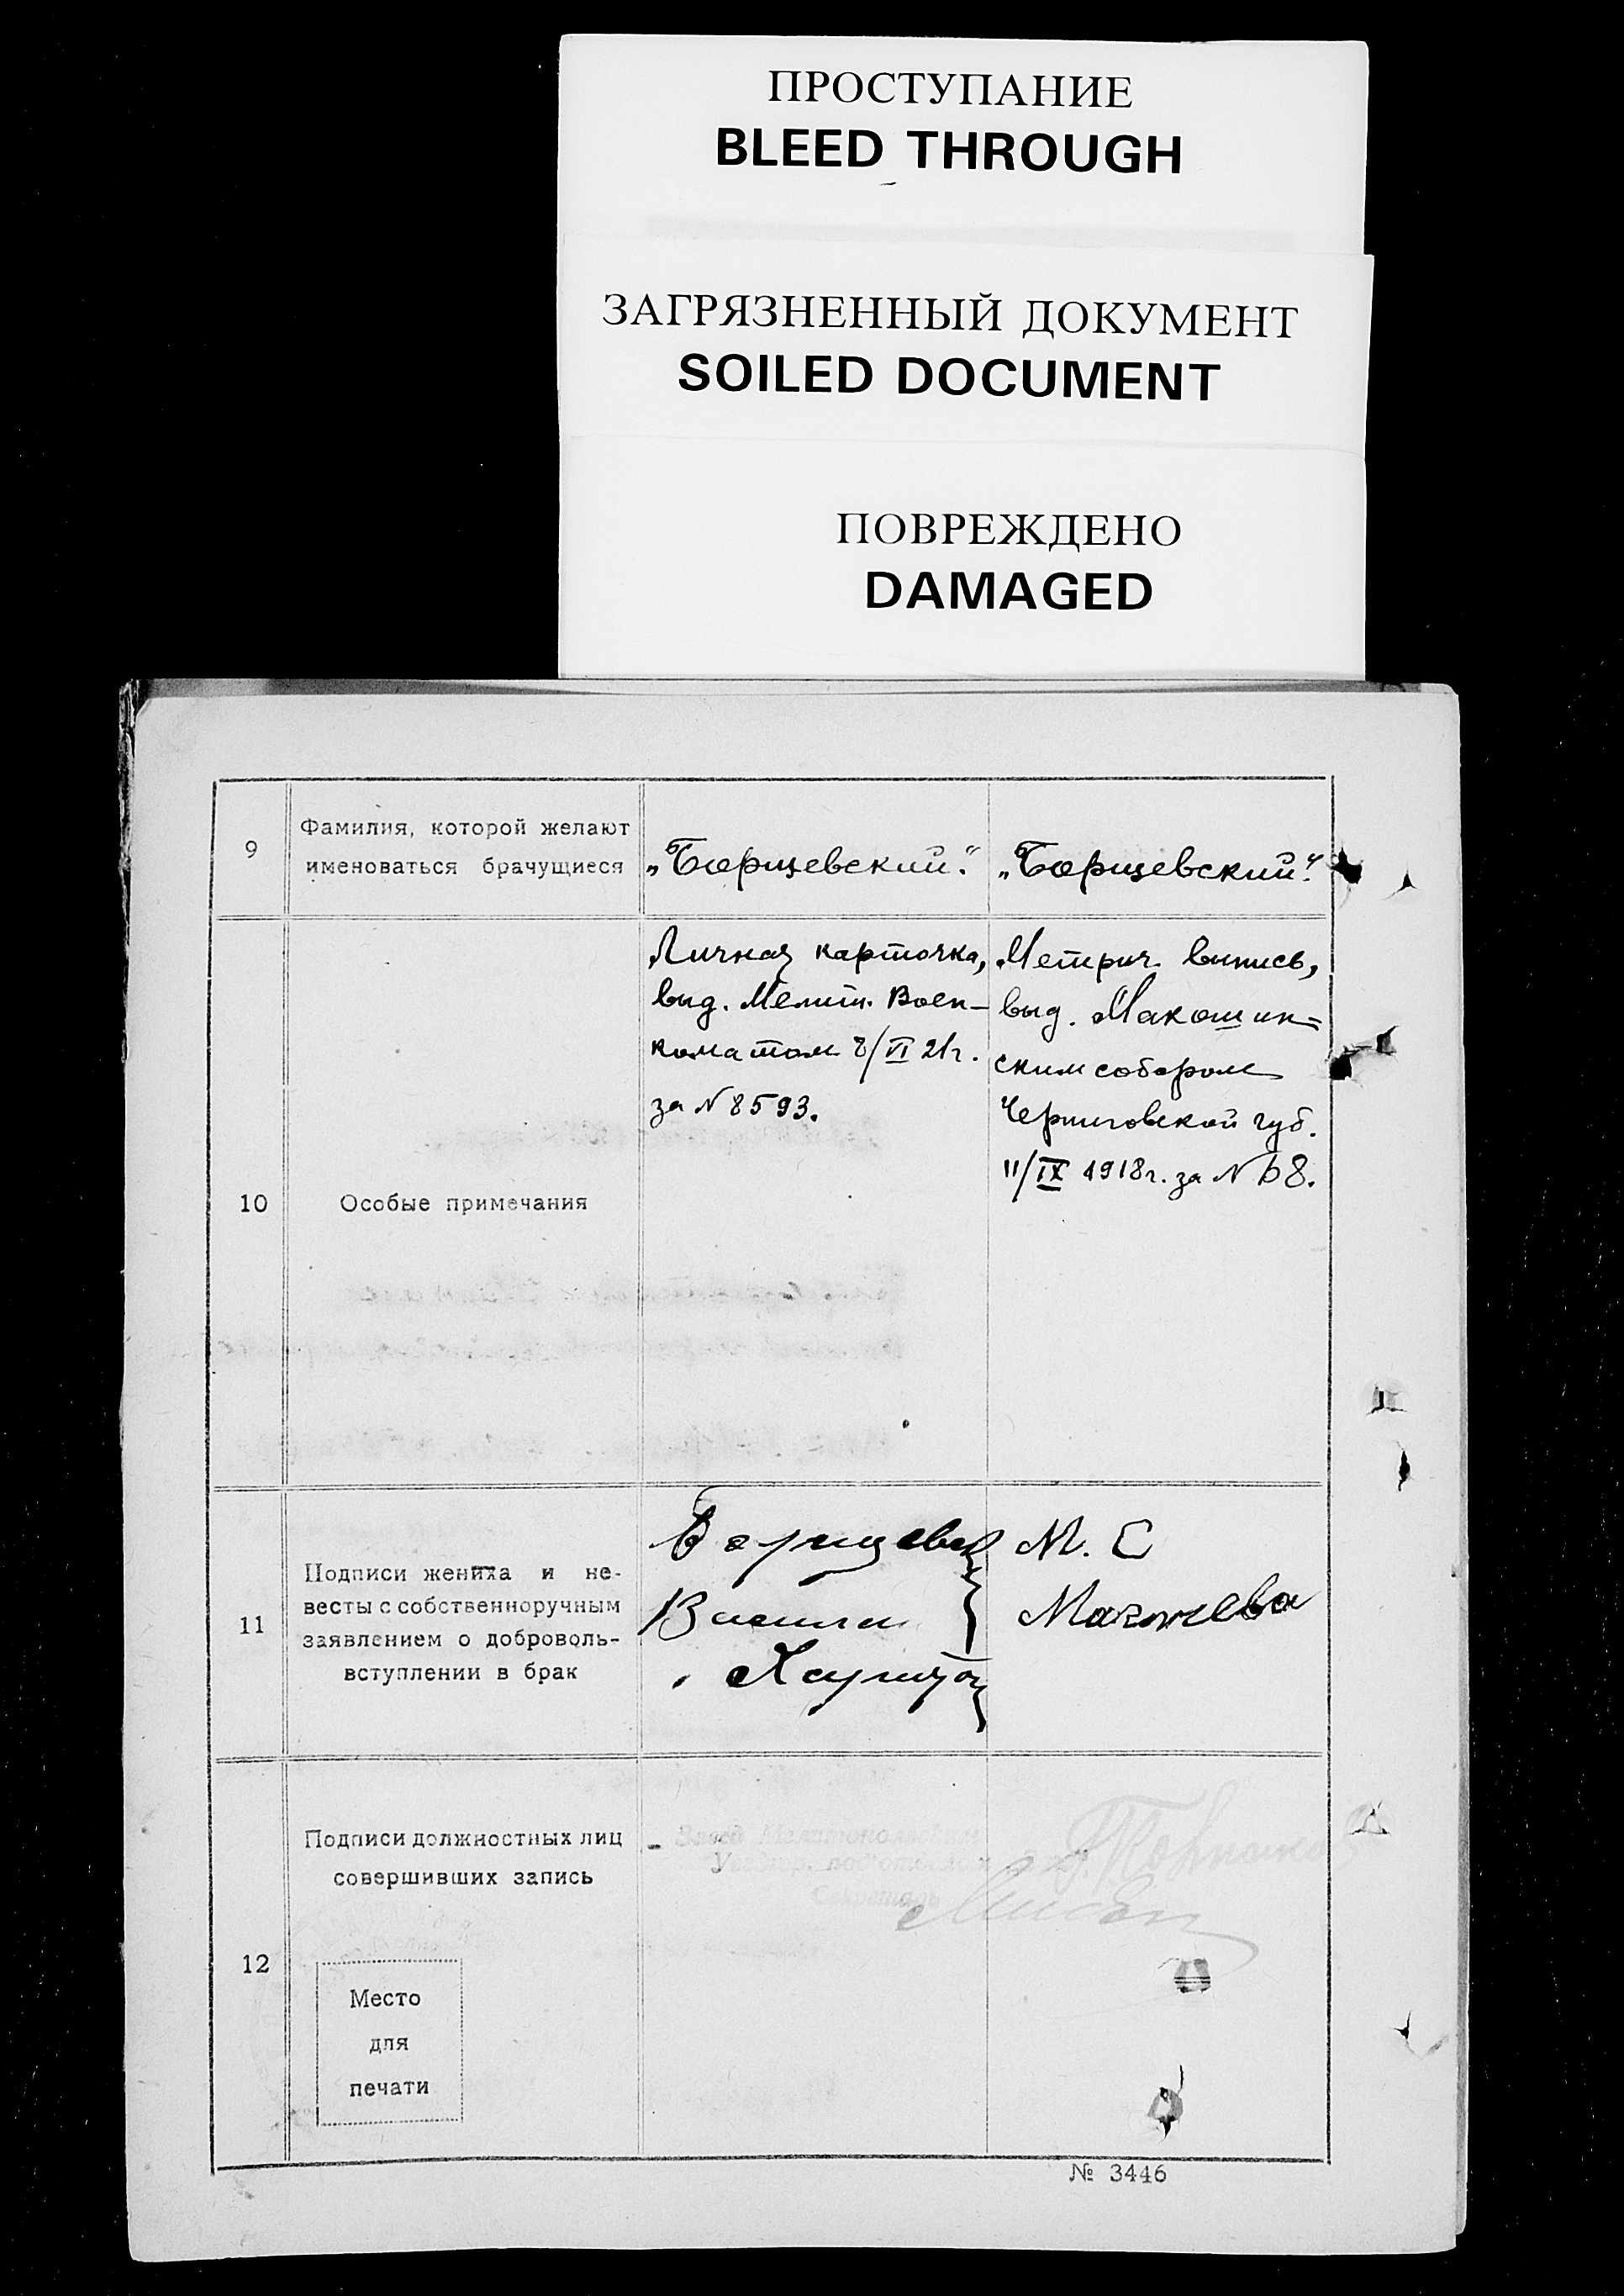 ПРОСТУПАНИЕ
BLEED THROUGH
ЗАГРЯЗНЕННЫЙ ДОКУМЕНТ
SOILED DOCUMENT
ПОВРЕЖДЕНО
DAMAGED
9
Фамилия, которой желают
именоваться брачущиеся
„Борщевский".
„Борщевский".
10
Особые примечания
Личная карточка,
выд. Мелит. Воен-
коматом 8/VI 21г.
за N 8593.
Метрич. выпись,
выд. Макошин=
ским собором
Черниговской губ.
11/IX 1918г. за N 68.
11
Подписи жениха и не-
весты с собственноручным
заявлением о доброволь-
вступлении в брак
Борщевск
М. С
12
Подписи должностных лиц
совершивших запись
Завед Мелитопольским
Секретарь
Место
для
печати
№ 3446